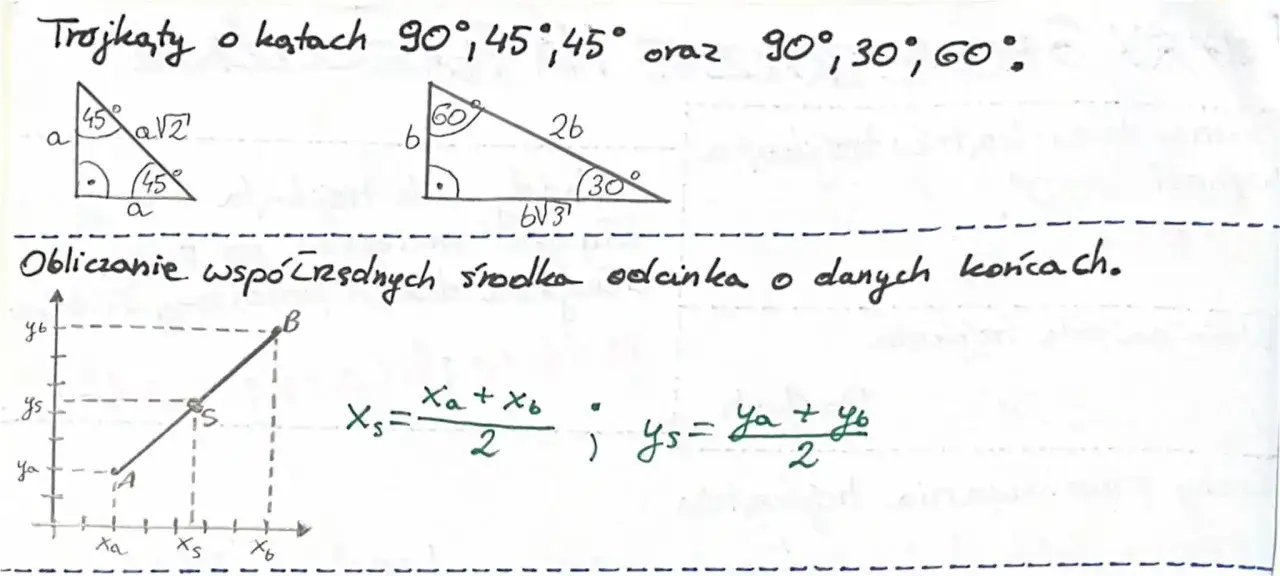 Trójkąty o kątach 90°, 45°, 45° oraz 90°, 30°, 60°.
45°
a
a√2
45°
a
60°
2b
b
30°
b√3
Obliczanie współrzędnych środka odcinka o danych końcach.
yb
B
ys
S
xs = xa + xb / 2 ; ys = ya + yb / 2
ya
A
xa xs xb